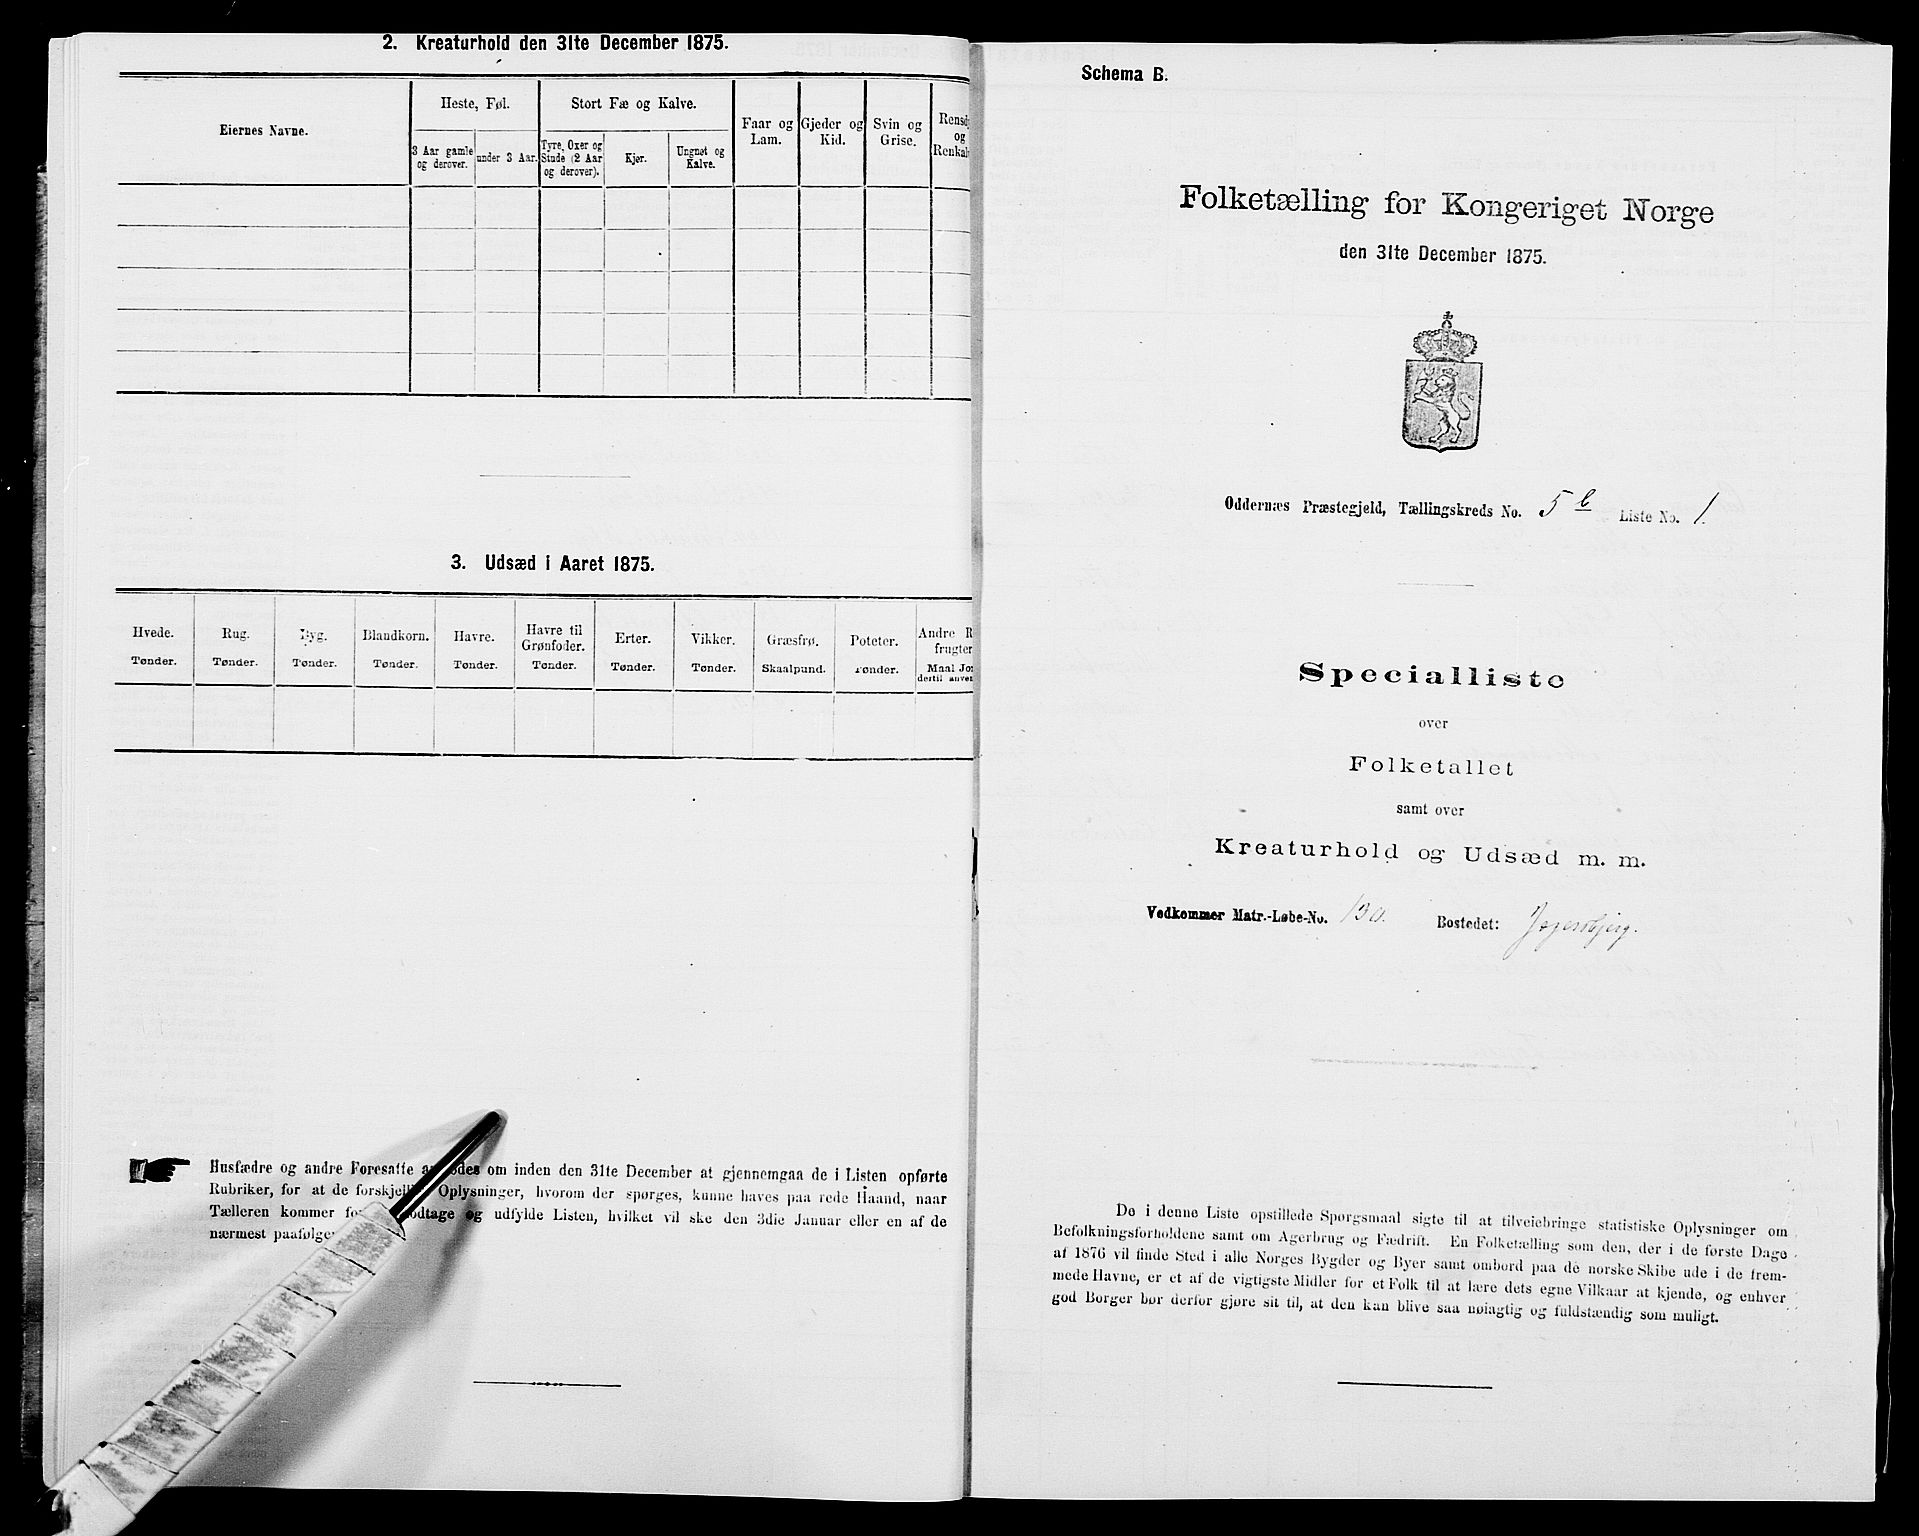 2. Kreaturhold den 31te December 1875.
Eiernes Navne.
Heste, Føl.
Stort Fæ og Kalve.
Faar og Lam.
Gjeder og Kid.
Svin og Grise.
Rensdy
og
Renkal
3 Aar gamle og derover.
under 3 Aar.
Tyre, Oxer og Stude (2 Aar og derover).
Kjør.
Ungnøt og Kalve.
3. Udsæd i Aaret 1875.
Hvede.
Rug.
Byg.
Blandkorn.
Havre.
Havre til Grønfoder.
Erter.
Vikker.
Græsfrø.
Poteter.
Andre R
frugter
Tønder.
Tønder.
Tønder.
Tønder.
Tønder.
Tønder.
Tønder.
Tønder.
Skaalpund.
Tønder.
Maal Jor
dertil anven
Husfædre og andre Foresatte a odes om inden den 31te December at gjennemgaa de i Listen opførte
Rubriker, for at de forskjelli Oplysninger, hvorom der spørges, kunne haves paa rede Haand, naar
Tælleren kommer fo odtage og udfylde Listen, hvilket vil ske den 3die Januar eller en af de
nærmest paafølge
Schema B.
Folketælling for Kongeriget Norge
den 31te December 1875.
Oddernæs Præstegjeld, Tællingskreds No. 5 b Liste No. 1.
Specialliste
over
Folketallet
samt over
Kreaturhold og Udsæd m. m.
Vedkommer Matr.-Løbe-No. 130. Bostedet: Jegersbjerg.
De i denne Liste opstillede Spørgsmaal sigte til at tilveiebringe statistiske Oplysninger om
Befolkningsforholdene samt om Agerbrug og Fædrift. En Folketælling som den, der i de første Dage
af 1876 vil finde Sted i alle Norges Bygder og Byer samt ombord paa de norske Skibe ude i de frem-
mede Havne, er et af de vigtigste Midler for et Folk til at lære dets egne Vilkaar at kjende, og enhver
god Borger bør derfor gjøre sit til, at den kan blive saa nøiagtig og fuldstændig som muligt.